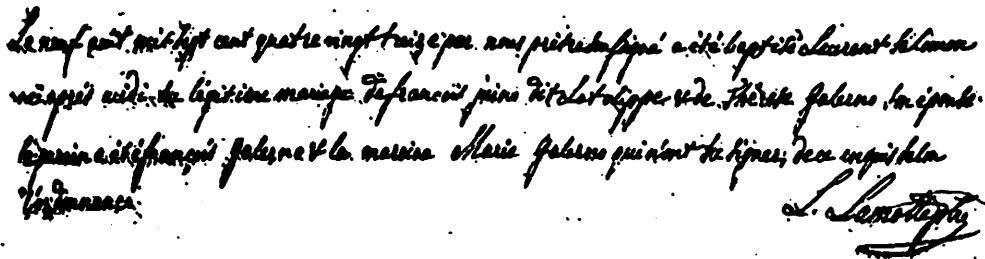 Le neuf août mil sept cent quatre vingt treize par nous prêtre sousigné a été baptisé Laurent né mon
né après midi du légitime mariage de françois dit et de Thérèse Galerno son épouse
le parain a été françois Galerno et la maraine Marie Galerno qui n'ont su signer, de ce enquis selon
l'ordonnance
L. Lamotte ptre